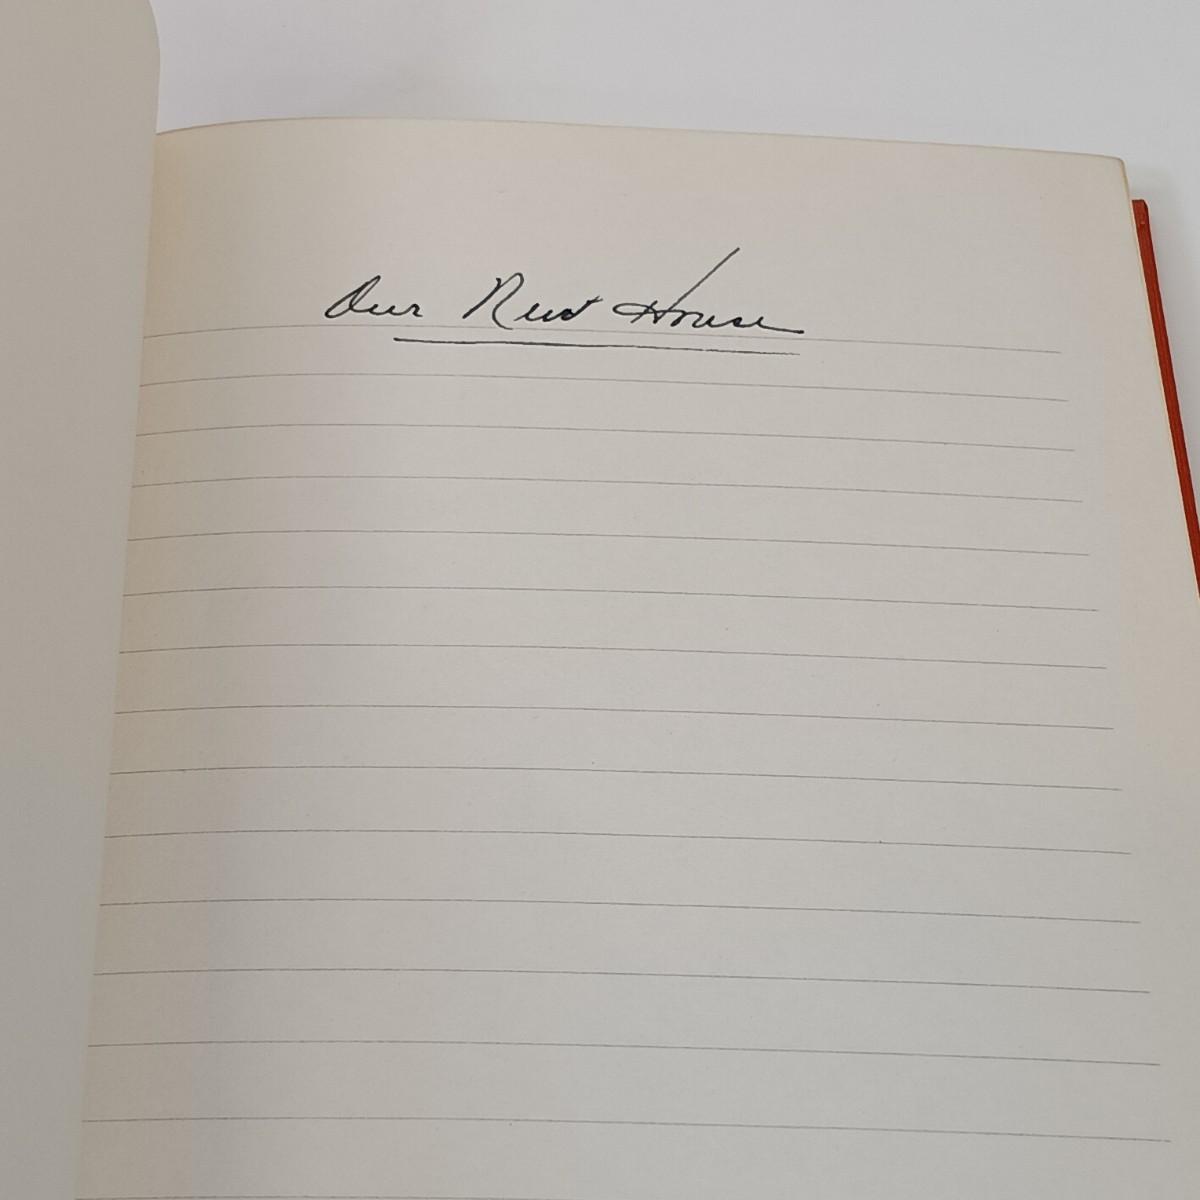 Our New House